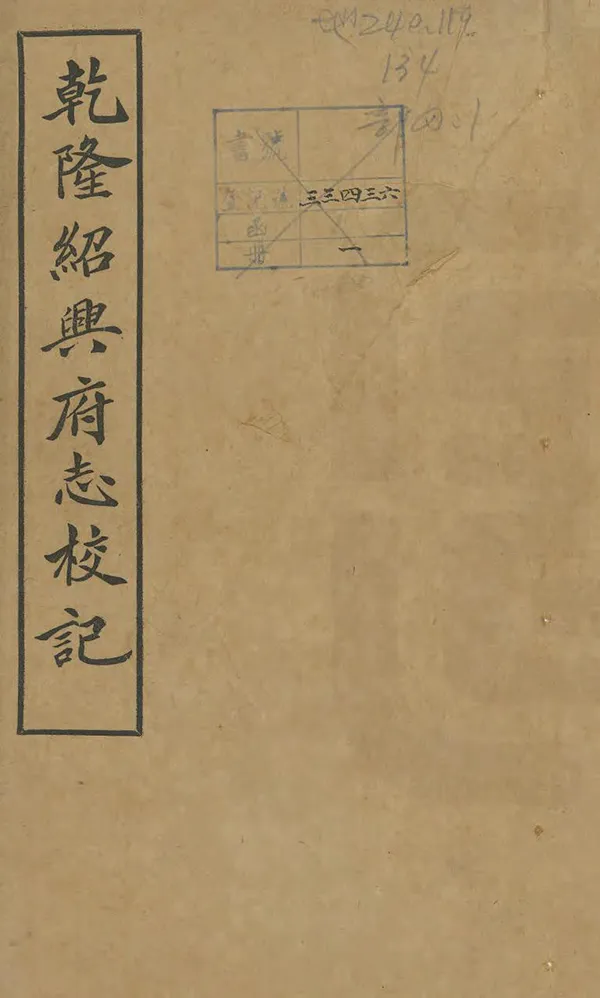 乾隆紹興府志校記
134
書號
登記號 三三四三六
函
册 一